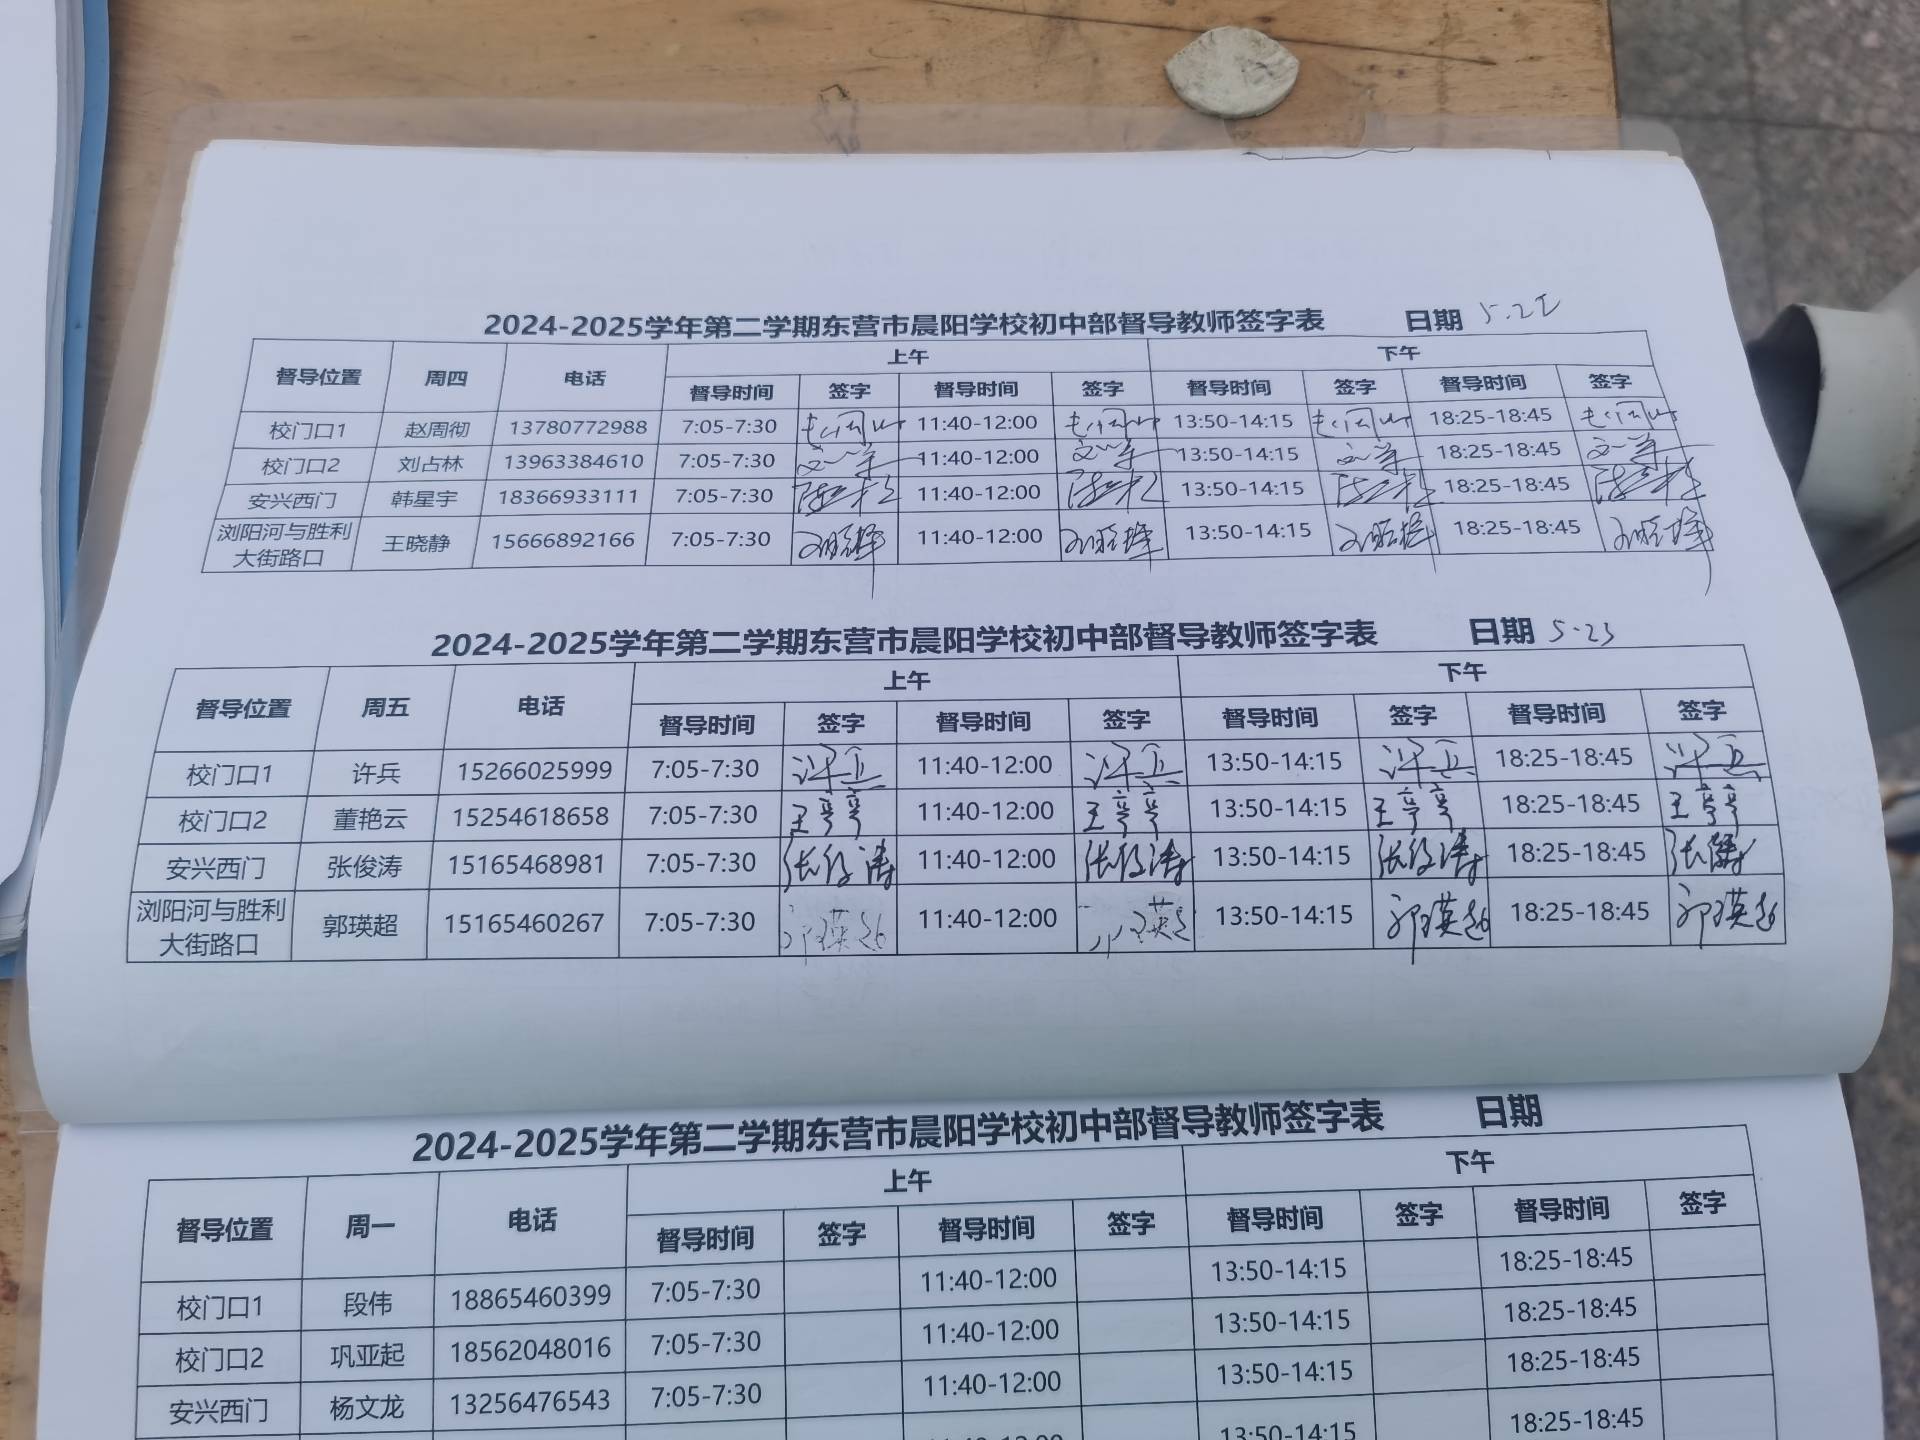 2024-2025学年第二学期东营市晨阳学校初中部督导教师签字表 日期 5.22
督导位置 周四 电话 上午 下午
督导时间 签字 督导时间 签字 督导时间 签字 督导时间 签字
校门口1 赵周彻 13780772988 7:05-7:30 11:40-12:00 13:50-14:15 18:25-18:45
校门口2 刘占林 13963384610 7:05-7:30 11:40-12:00 13:50-14:15 18:25-18:45
安兴西门 韩星宇 18366933111 7:05-7:30 11:40-12:00 13:50-14:15 18:25-18:45
浏阳河与胜利
大街路口 王晓静 15666892166 7:05-7:30 11:40-12:00 13:50-14:15 18:25-18:45
2024-2025学年第二学期东营市晨阳学校初中部督导教师签字表 日期 5.23
督导位置 周五 电话 上午 下午
督导时间 签字 督导时间 签字 督导时间 签字 督导时间 签字
校门口1 许兵 15266025999 7:05-7:30 许兵 11:40-12:00 许兵 13:50-14:15 许兵 18:25-18:45 许兵
校门口2 董艳云 15254618658 7:05-7:30 11:40-12:00 13:50-14:15 18:25-18:45
安兴西门 张俊涛 15165468981 7:05-7:30 张俊涛 11:40-12:00 张俊涛 13:50-14:15 张俊涛 18:25-18:45 张俊涛
浏阳河与胜利
大街路口 郭瑛超 15165460267 7:05-7:30 郭瑛超 11:40-12:00 郭瑛超 13:50-14:15 郭瑛超 18:25-18:45 郭瑛超
2024-2025学年第二学期东营市晨阳学校初中部督导教师签字表 日期
督导位置 周一 电话 上午 下午
督导时间 签字 督导时间 签字 督导时间 签字 督导时间 签字
校门口1 段伟 18865460399 7:05-7:30 11:40-12:00 13:50-14:15 18:25-18:45
校门口2 巩亚起 18562048016 7:05-7:30 11:40-12:00 13:50-14:15 18:25-18:45
安兴西门 杨文龙 13256476543 7:05-7:30 11:40-12:00 13:50-14:15 18:25-18:45
11:40-12:00 13:50-14:15 18:25-18:45